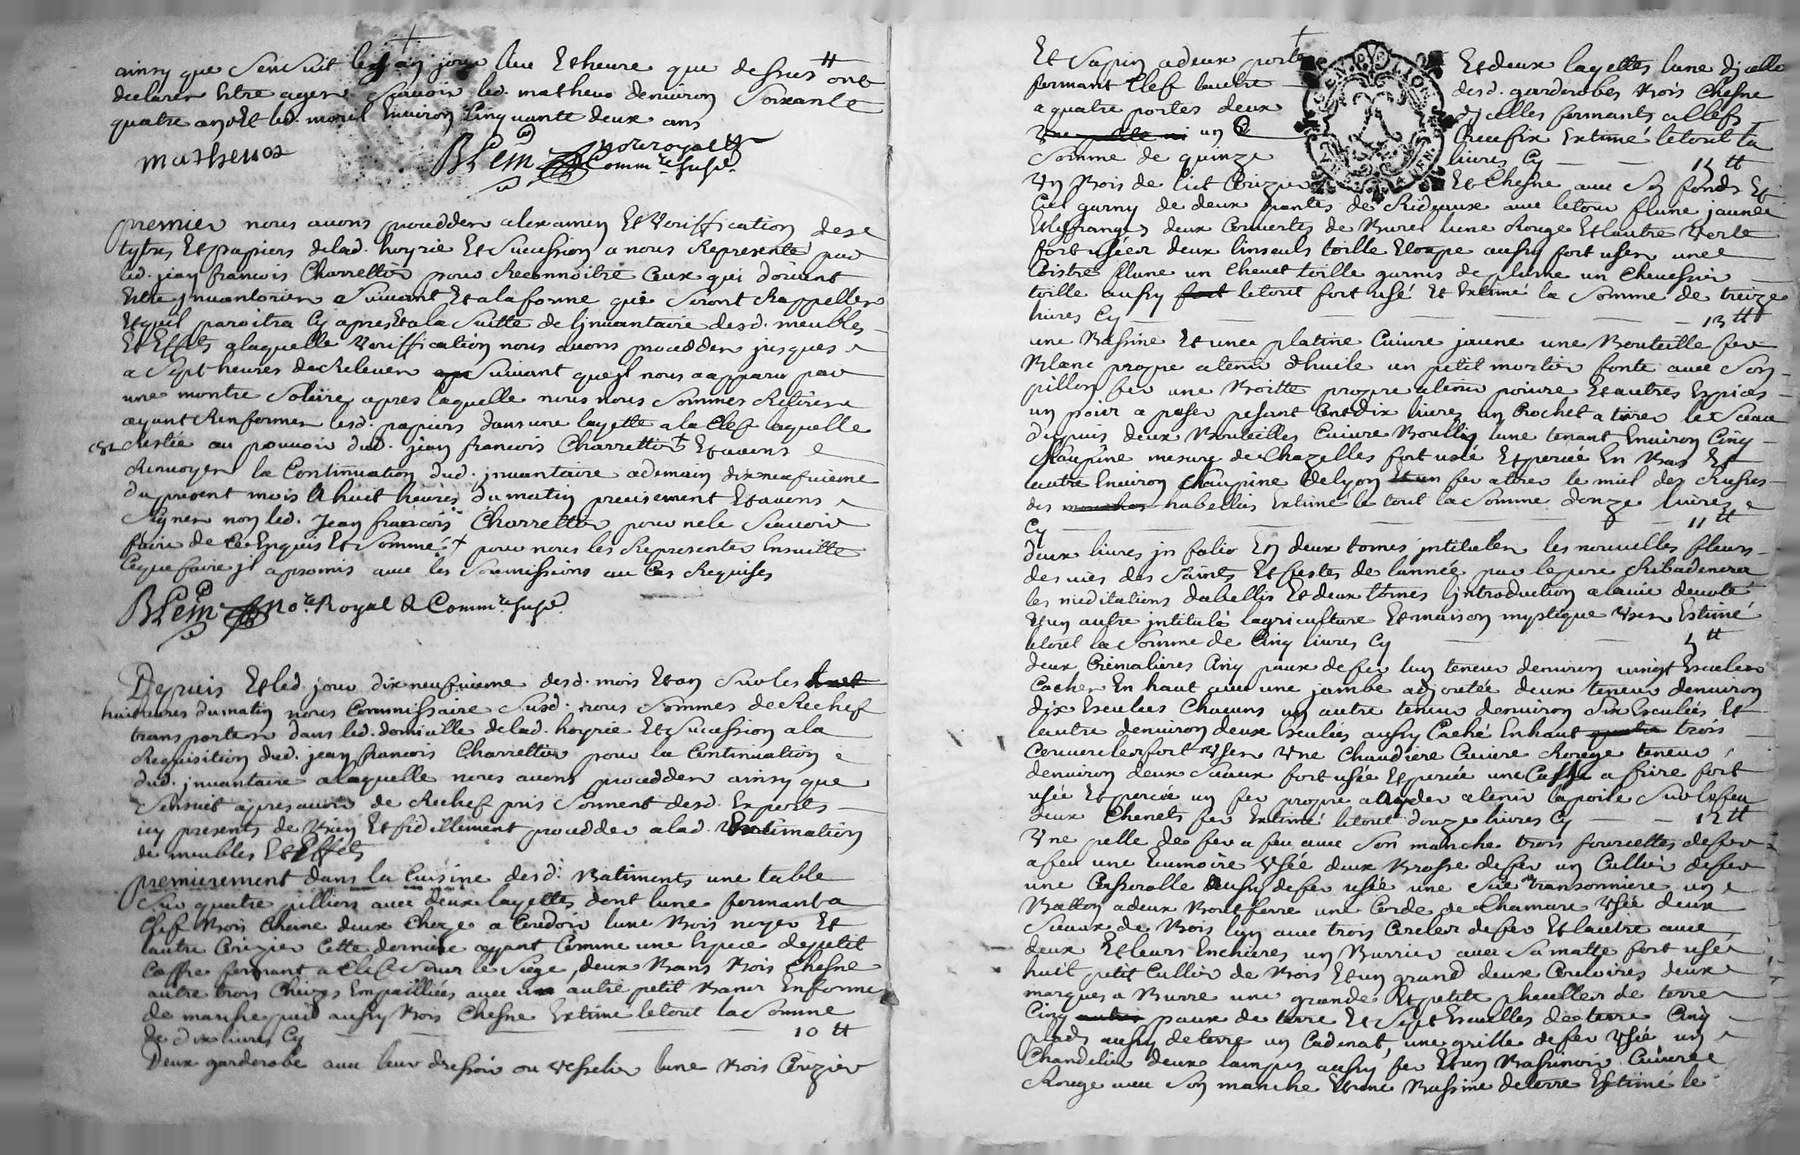 ainsy que s'ensuit lesd an jour lieu et heure que dessus ont
declarer estre agers Scavoir led. matheuo denviron soixante
quatre ans et led. morel Environ Cinquante deux ans
matheuos
BLEin No.re royal &
Comm.re susd.
premier nous avons procedder a lexamen Et Veriffication des
tytres Et papiers delad. hoyrie Et Sucession a nous Representé par
led. jean francois Charrettier pour Reconnoitre Ceux qui doivent
Estre jnvantorier Suivant Et a la forme qui Seront Rappeller
Et quil paroitra Cy apres Et a la Suitte de ljnvantaire desd. meubles
Et Effets a laquelle Veriffication nous avons procedder jusques
a Sept heures de Relever Suivant quejl nous a apparu par
une montre Solaire, apres laquelle nous nous Sommes Retirer
ayant Renfermer lesd. papiers dans une layette a la Clef laquelle
Restée au pouvoir dud. jean francois Charrettier Et avons
Renvoyer la Continuation dud. jnvantaire a demain dix neufvieme
du present mois a huit heures du matin precisement Et avons
Signer non led. Jean francois Charrettier pour ne le Scavoir
faire de ce Enquis Et Sommé pour nous les Representer Ensuitte
Ceque faire jl a promis avec les Soumissions au Cas Requises
BLEin No.re Royal & Comm.re susd.
Depuis Et led. jour dix neufvieme desd. mois Et an Sur les huit
huit heures du matin nous Commissaire Susd. nous Sommes de Rechef
transporter dans led. domicille delad. hoyrie Et Sucession a la
Requisition dud. jean francois Charrettier pour la Continuation
dud. jnvantaire a laquelle nous avons procedder ainsy que
Sensuit apres avoir de Rechef pris Serment desd. Experts
icy presents de bien Et fidellement procedder a lad. Estimation
de meubles Et Effets
premierement dans la Cuisine desd. Batiments une table
Sur quatre pilliers avec deux layettes dont lune fermant a
Clef Bois Chesne deux Cheze a lune Bois noyer Et
lautre Cerizier Cette derniere ayant Comme une Espece de petit
Coffre fermant a Clef sous le Siege, deux Bans Bois Chesne
autre trois Chaizes Empailliées avec un autre petit Banc En forme
de marche pied aussy Bois Chesne Extimé le tout la Somme
de dix livres Cy 10 ₶
Deux garderobe avec leur dressoir ou Vesselier lune Bois Cerizier
Et Sapin a deux portes Et deux layettes lune djcelle
fermant Clef lautre desd. garderobes Bois Chesne
a quatre portes deux djcelles fermants a Clefs
un Crucifix Extimé le tout la
Somme de quinze livres Cy 15 ₶
Un Bois de lict Cerizier Et Chesne avec Son fonds Et
Ciel garny de deux pantes de Rideaux avec le tour flune jaunee
Et les franges deux Couvertes de Bure lune Rouge Et lautre Verte
fort usée deux linseuls toille Etoupe aussy fort uses une
Coistre plume un Chevet toille garnis de plume un Chevessier
toille aussy fort le tout fort usé Et Extimé la Somme de treize
livres Cy 13 ₶
une Bassine Et une platine Cuivre jaune une Bouteille fer
Blanc propre a tenir dhuile un petit mortier fonte avec Son
pillon fer une Boitte propre a tenir poivre Et autres Espices
un poix a peser pesant Cent dix livres un Crochet a tirer le Seau
dupuis deux Bouteilles Cuivre Bouillis lune tenant Environ Cinq
Chaupine mesure de Chazelles fort usé Et percée En Bas Et
lautre Environ Chaupine de lyon Et un fer a tirer le miel des Ruches
des mouches habellis Extimé le tout la Somme donze livres
Cy 11 ₶
deux livres jn folio En deux tomes jntituler les nouvelles fleurs
des vies des Saints Et festes de lannée par le pere Ribadeneira
les meditations dabellis Et deux tomes lintroduction a la vie devote
Et un autre jntitulé lagriculture Et maison mystique Uses Estimé
le tout la Somme de Cinq livres Cy 5 ₶
deux Cremalieres Cinq paux de fer lun teneur denviron vingt Esculées
Cacher En haut avec une jambe adjoutée deux teneur denviron
dix Esculées Chacuns un autre teneur denviron Six Esculées Et
lautre denviron deux Esculées aussy Caché En haut quatre trois
Couvercles fort Uses Une Chaudiere Cuivre Rouge teneur
denviron deux Seaux fort usée Et percée une Casse a frire fort
usée Et percée un fer propre a ayder a tenir la poile Sur le feu
deux Chenets fer Extimé le tout douze livres Cy 12 ₶
Une pelle de fer a feu avec Son manche trois fourcettes de fer
a feu une Ecumoire Usée deux Brosse de fer un Cullier de fer
une Casserolle aussy de fer usée une Sie transonniere un
Batton a deux Bouts ferre une Corde de Chamare Usée deux
Seaux de Bois lun avec trois Cercles de fer Et lautre avec
deux Et leurs Enchieres un Burrier avec Sa matte fort usé
huit petit Cullier de Bois Et un grand deux Couloires deux
marques a Burre une grande Et petite de terre
Cinq paux de terre Et Sept Escuelles de terre Cinq
plads aussy de terre un Cadenat, une grille de fer Usée un
Chandelier deux lampes aussy fer Et un Bassinoir Cuivre
Rouge avec Son manche Et une Bassine de terre Estimé le